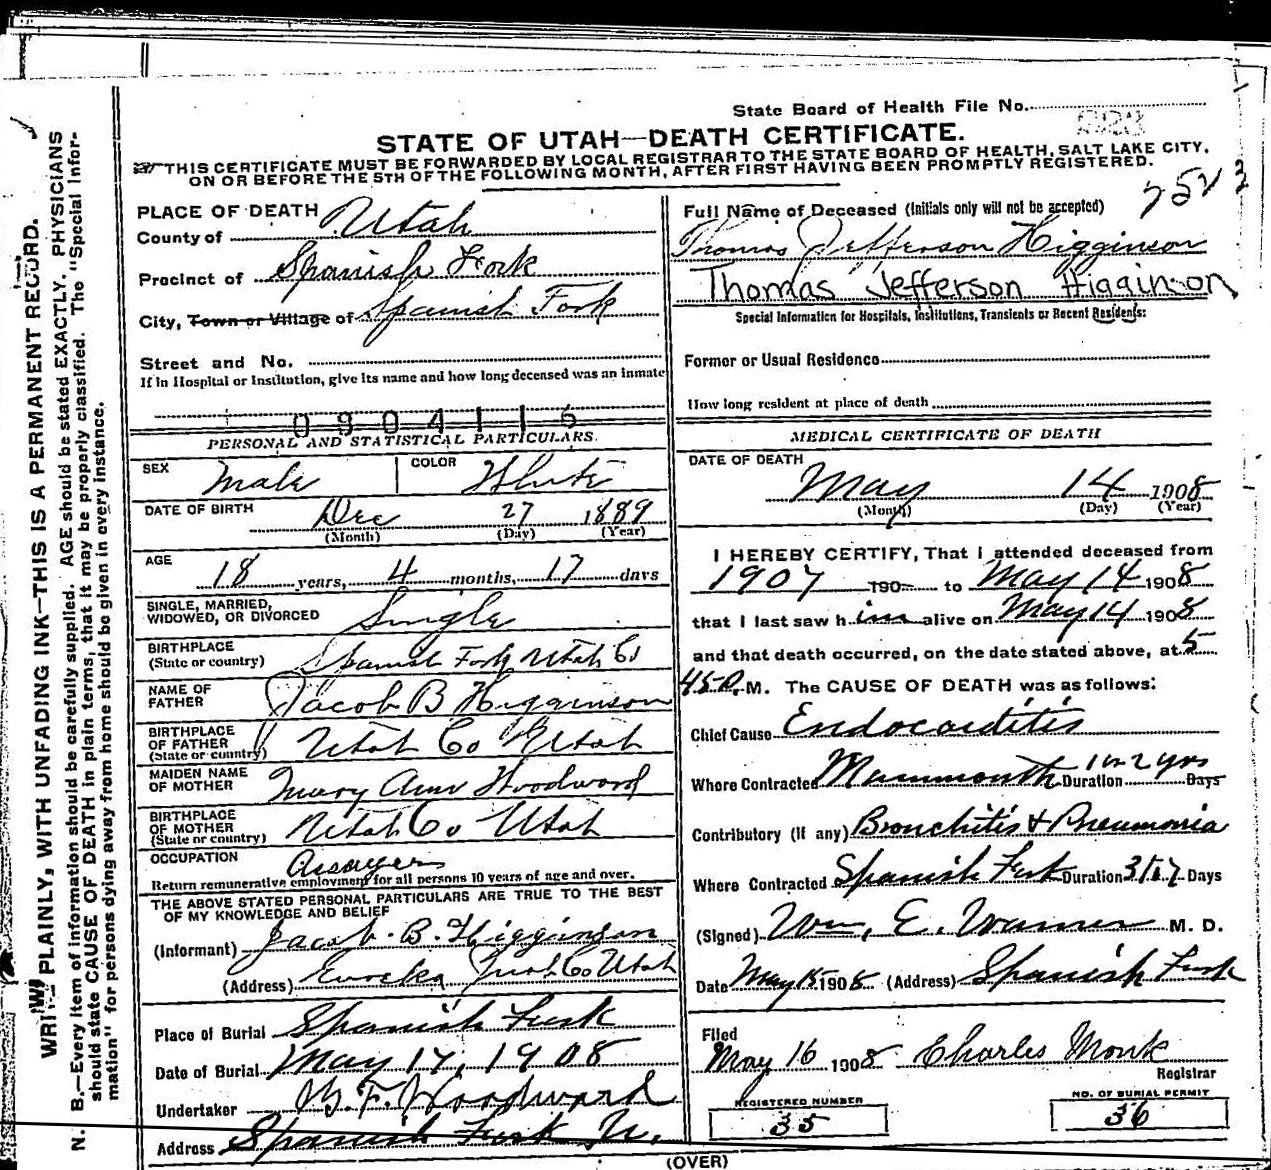 State Board of Health File No.
STATE OF UTAH—DEATH CERTIFICATE.
THIS CERTIFICATE MUST BE FORWARDED BY LOCAL REGISTRAR TO THE STATE BOARD OF HEALTH, SALT LAKE CITY,
ON OR BEFORE THE 5TH OF THE FOLLOWING MONTH, AFTER FIRST HAVING BEEN PROMPTLY REGISTERED.
WRITE PLAINLY, WITH UNFADING INK—THIS IS A PERMANENT RECORD.
N. B.—Every item of information should be carefully supplied. AGE should be stated EXACTLY. PHYSICIANS
should state CAUSE OF DEATH in plain terms, that it may be properly classified. The "Special Infor-
mation" for persons dying away from home should be given in every instance.
PLACE OF DEATH
County of Utah
Precinct of Spanish Fork
City, Town or Village of Spanish Fork
Street and No.
If in Hospital or Institution, give its name and how long deceased was an inmate
0904116
PERSONAL AND STATISTICAL PARTICULARS.
SEX Male COLOR White
DATE OF BIRTH Dec 27 1889
(Month) (Day) (Year)
AGE 18 years, 4 months, 17 days
SINGLE, MARRIED,
WIDOWED, OR DIVORCED Single
BIRTHPLACE
(State or country) Spanish Fork Utah Co
NAME OF
FATHER Jacob B Higginson
BIRTHPLACE
OF FATHER
(State or country) Utah Co Utah
MAIDEN NAME
OF MOTHER Mary Ann Woodward
BIRTHPLACE
OF MOTHER
(State or country) Utah Co Utah
OCCUPATION Assayer
Return remunerative employment for all persons 10 years of age and over.
THE ABOVE STATED PERSONAL PARTICULARS ARE TRUE TO THE BEST
OF MY KNOWLEDGE AND BELIEF
(Informant) Jacob. B. Higginson
(Address) Eureka Juab Co Utah
Place of Burial Spanish Fork
Date of Burial May 17, 1908
Undertaker Woodward
Address Spanish Fork
Full Name of Deceased (Initials only will not be accepted)
Thomas Jefferson Higginson
Thomas Jefferson Higginson
Special Information for Hospitals, Institutions, Transients or Recent Residents:
Former or Usual Residence
How long resident at place of death
MEDICAL CERTIFICATE OF DEATH
DATE OF DEATH
May 14 1908
(Month) (Day) (Year)
I HEREBY CERTIFY, That I attended deceased from
1907 190 to May 14 1908
that I last saw him alive on May 14 1908
and that death occurred, on the date stated above, at 5
45 P. M. The CAUSE OF DEATH was as follows:
Chief Cause Endocarditis
Where Contracted Mammouth Duration 1 or 2 yrs Days
Contributory (if any) Bronchitis & Pneumonia
Where Contracted Spanish Fork Duration Days
(Signed) Wm. E. Warner M. D.
Date May 15 1908 (Address) Spanish Fork
Filed
May 16 1908 Charles Monk
Registrar
REGISTERED NUMBER
35
NO. OF BURIAL PERMIT
36
(OVER)